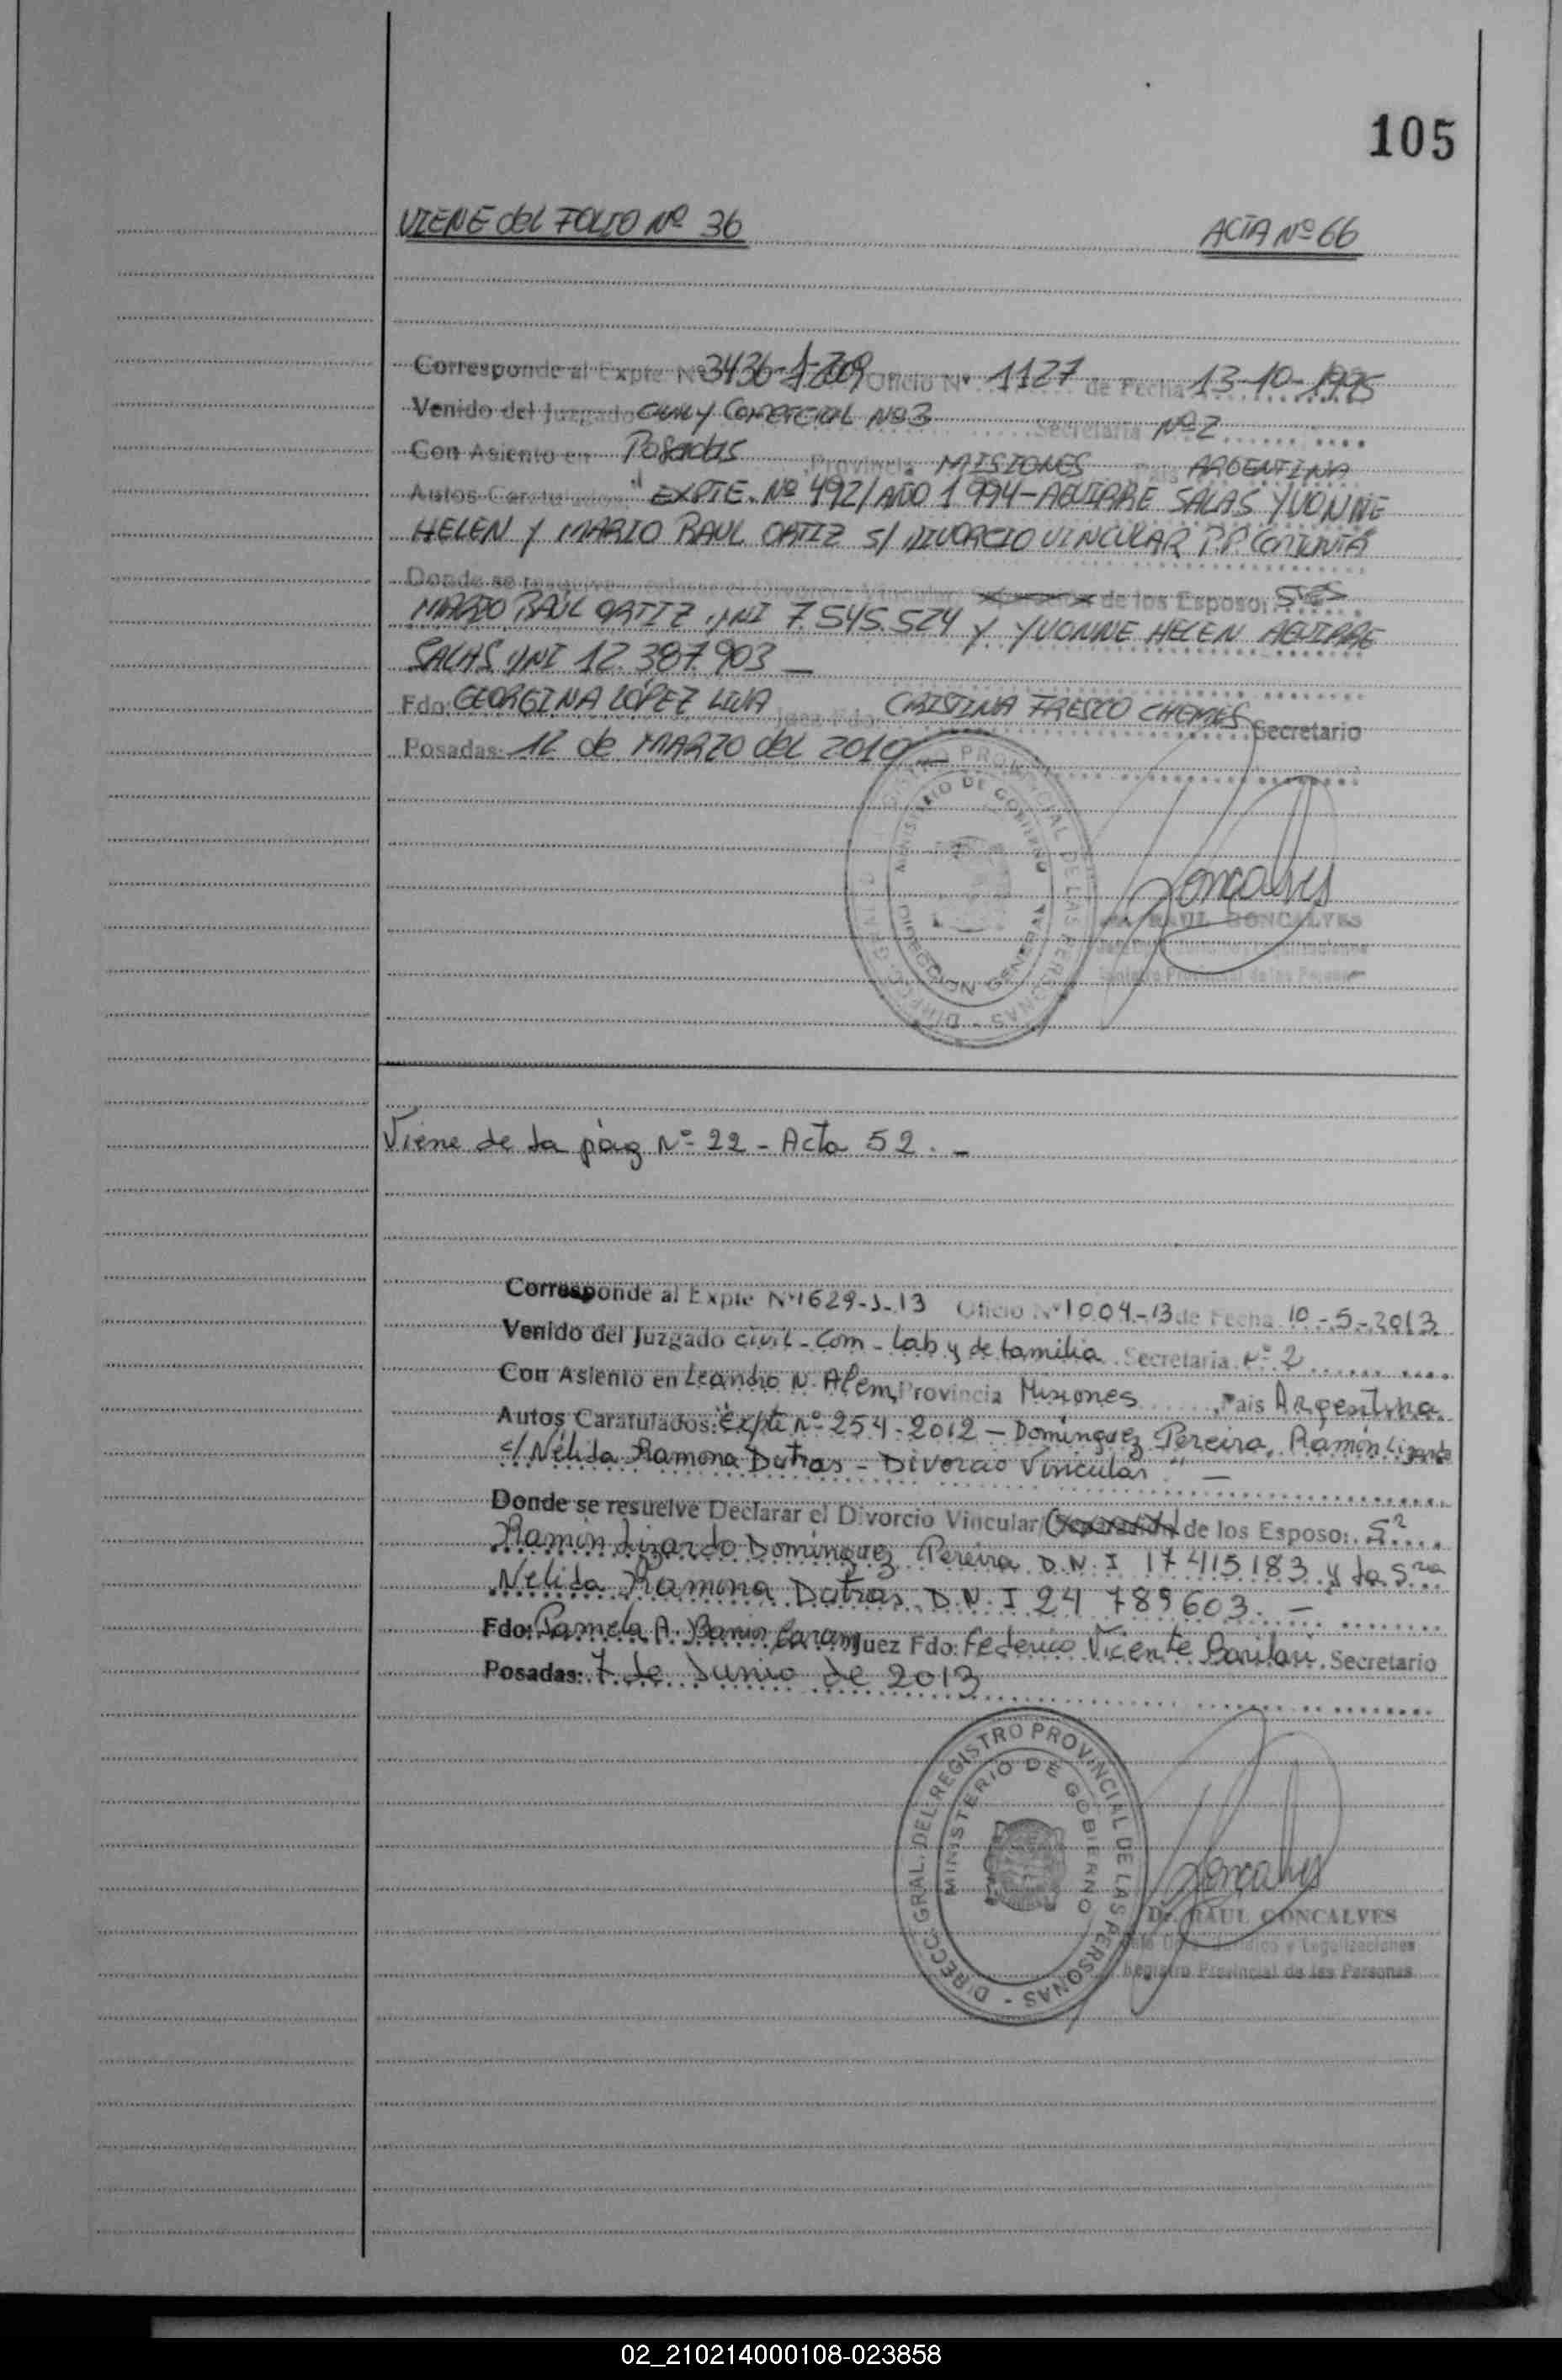 105
VIENE del FOLIO Nº 36 ACTA Nº 66
Corresponde al Expte Nº 3436-J-2009 Oficio Nº 1127 de Fecha 13-10-1995
Venido del Juzgado CIVIL Y COMERCIAL Nº 3 Secretaria Nº 2
Con Asiento en Posadas Provincia MISIONES País ARGENTINA
Autos Caratulados: " EXPTE. Nº 492/AÑO 1994-AGUIRRE SALAS YVONNE
HELEN Y MARIO RAUL ORTIZ S/ DIVORCIO VINCULAR P.P CONJUNTA
Donde se resuelve Declarar el Divorcio Vincular de los Esposo: SRES
MARIO RAÚL ORTIZ DNI 7.545.524 y YVONNE HELEN AGUIRRE
SALAS DNI 12.387.903 —
Fdo: GEORGINA LÓPEZ LIVA Juez Fdo: CRISTINA FRESCO CHEMES Secretario
Posadas: 12 de MARZO del 2010 —
DIRECC. GRAL. DEL REGISTRO PROVINCIAL DE LAS PERSONAS -
MINISTERIO DE GOBIERNO
DIRECCION GENERAL
Goncalves
RAUL GONCALVES
Registro Provincial de las Personas
Viene de la pág Nº 22 - Acta 52. -
Corresponde al Expte Nº 1629-J-13 Oficio Nº 1004-13 de Fecha 10-5-2013
Venido del Juzgado civil-Com-Lab y de familia Secretaria Nº 2
Con Asiento en Leandro N. Alem, Provincia Misiones, País Argentina.
Autos Caratulados: "Expte Nº 254-2012 - Domínguez Pereira, Ramón Lizardo
c/ Nélida Ramona Dutras - Divorcio Vincular" —
Donde se resuelve Declarar el Divorcio Vincular/(Separación) de los Esposo: Sr
Ramón Lizardo Domínguez Pereira D.N.I 17 415 183 y la Sra
Nélida Ramona Dutras D.N.I 24 789 603. -
Fdo: Pamela A. Barrios Juez Fdo: Federico Vicente Parilari. Secretario
Posadas: 7 de Junio de 2013
DIRECC. GRAL. DEL REGISTRO PROVINCIAL DE LAS PERSONAS -
MINISTERIO DE GOBIERNO
Goncalves
Dr. RAUL GONCALVES
y Legalizaciones
Registro Provincial de las Personas
02_210214000108-023858